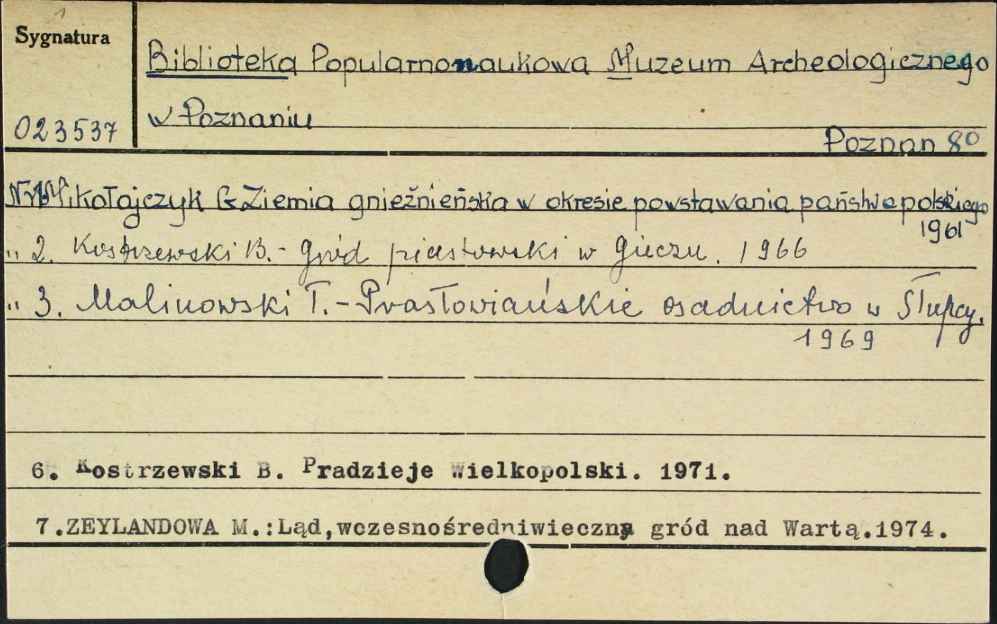 Sygnatura
Biblioteka Popularnonaukowa Muzeum Archeologicznego
w Poznaniu
023537
Poznan 8°
Nr 1 Mikołajczyk G Ziemia gnieźnieńska w okresie powstawania państwa polskiego
1961
" 2. Kostrzewski B. - Gród piastowski w Gieczu. 1966
" 3. Malinowski T. - Prasłowiańskie osadnictwo w Słupcy.
1969
6. Kostrzewski B. Pradzieje Wielkopolski. 1971.
7.ZEYLANDOWA M.:Ląd,wczesnośredniwieczny gród nad Wartą.1974.